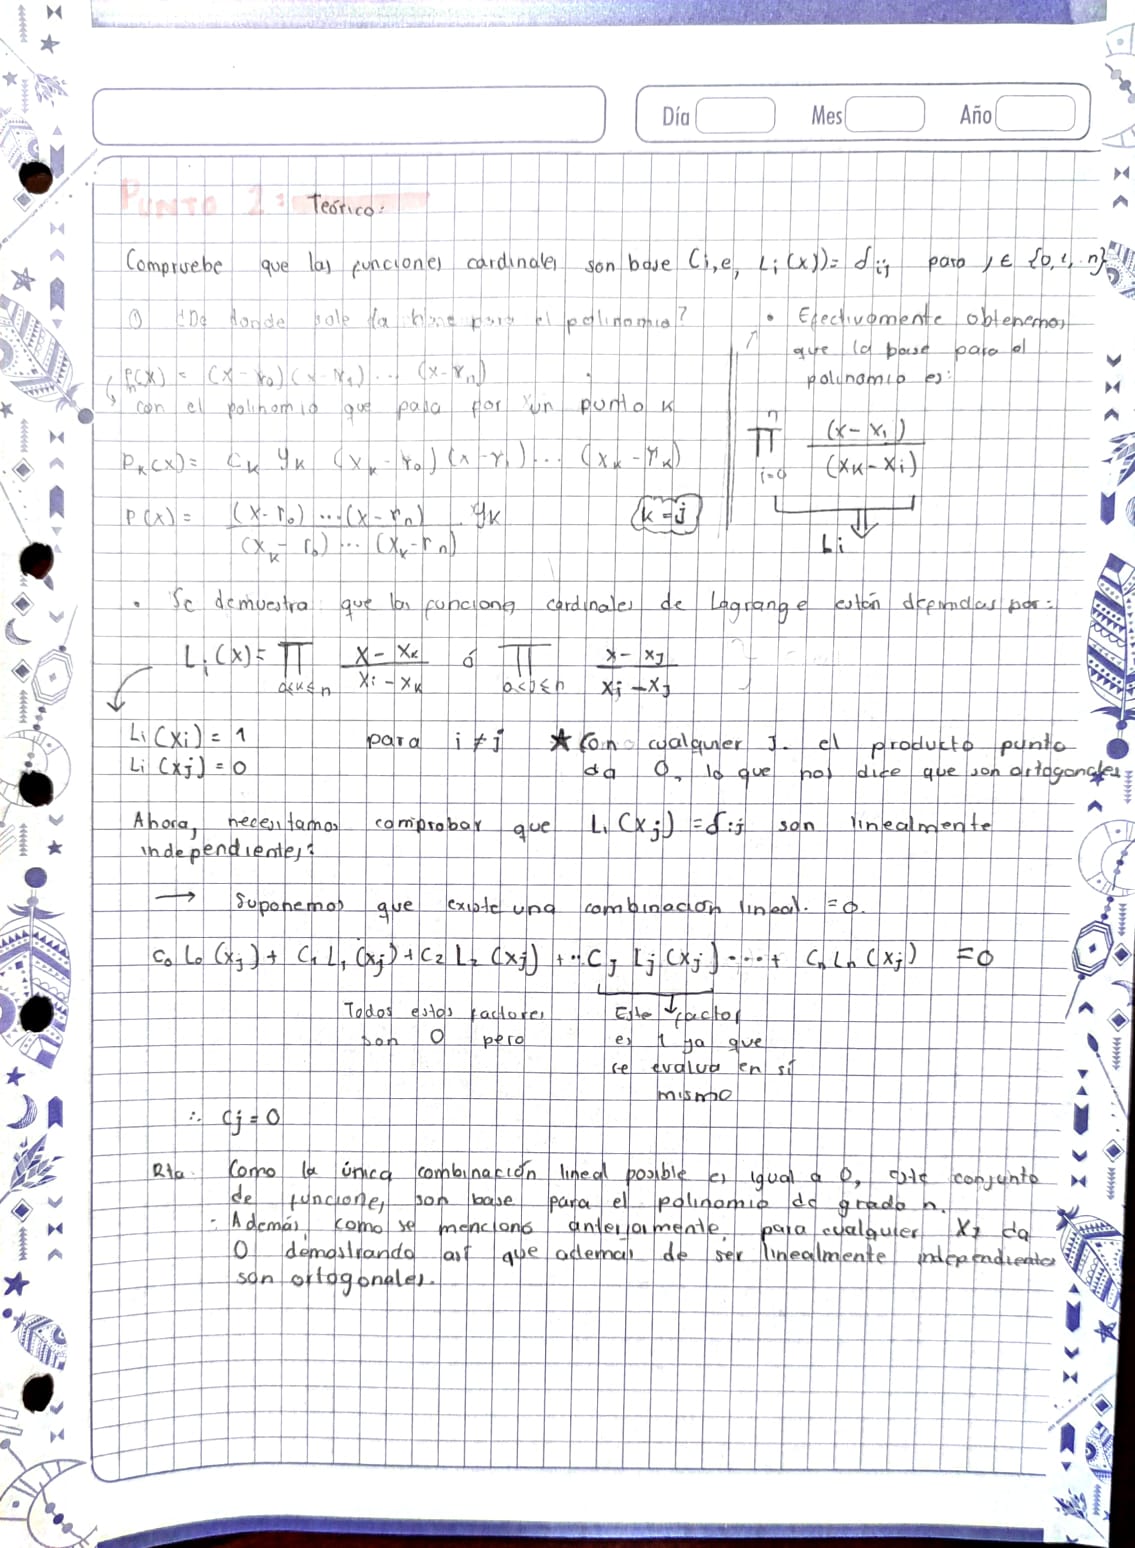 Día Mes Año
Punto 2: Teórico:
Compruebe que las funciones cardinales son base (i,e, Li(x))= δij para j ∈ {0,1,..n}
① ¿De donde sale la base para el polinomio?
Pn(x) = (x-r0)(x-r1)... (x-rn)
con el polinomio que pasa por un punto k
Pk(x)= Ck yk (xk-r0)(x-r1)... (xk-rk)
P(x)= (x-r0)...(x-rn) / (xk-r0)...(xk-rn) . yk
k=j
• Efectivamente obtenemos
que la base para el
polinomio es:
n ∏ i=0 (x-xi) / (xk-xi)
Li
• Se demuestra que las funciones cardinales de Lagrange están definidas por:
Li(x)= ∏ 0≤k≤n x-xk / xi-xk ó ∏ 0≤j≤n x-xj / xi-xj
Li(xi)= 1
Li(xj)=0
para i≠j
★ Con cualquier j. el producto punto
da 0, lo que nos dice que son ortogonales
Ahora, necesitamos comprobar que Li(xj)=δij son linealmente
independientes:
→ Suponemos que existe una combinación lineal. =0.
C0 L0(xj)+ C1 L1(xj)+C2 L2(xj)+..Cj Lj(xj)...+ Cn Ln(xj) =0
Todos estos factores
son 0 pero
Este factor
es 1 ya que
se evalua en sí
mismo
∴ Cj=0
Rta. Como la única combinación lineal posible es igual a 0, este conjunto
de funciones son base para el polinomio de grado n.
- Además como se mencionó anteriormente, para cualquier xj da
0 demostrando así que ademas de ser linealmente independientes
son ortogonales.